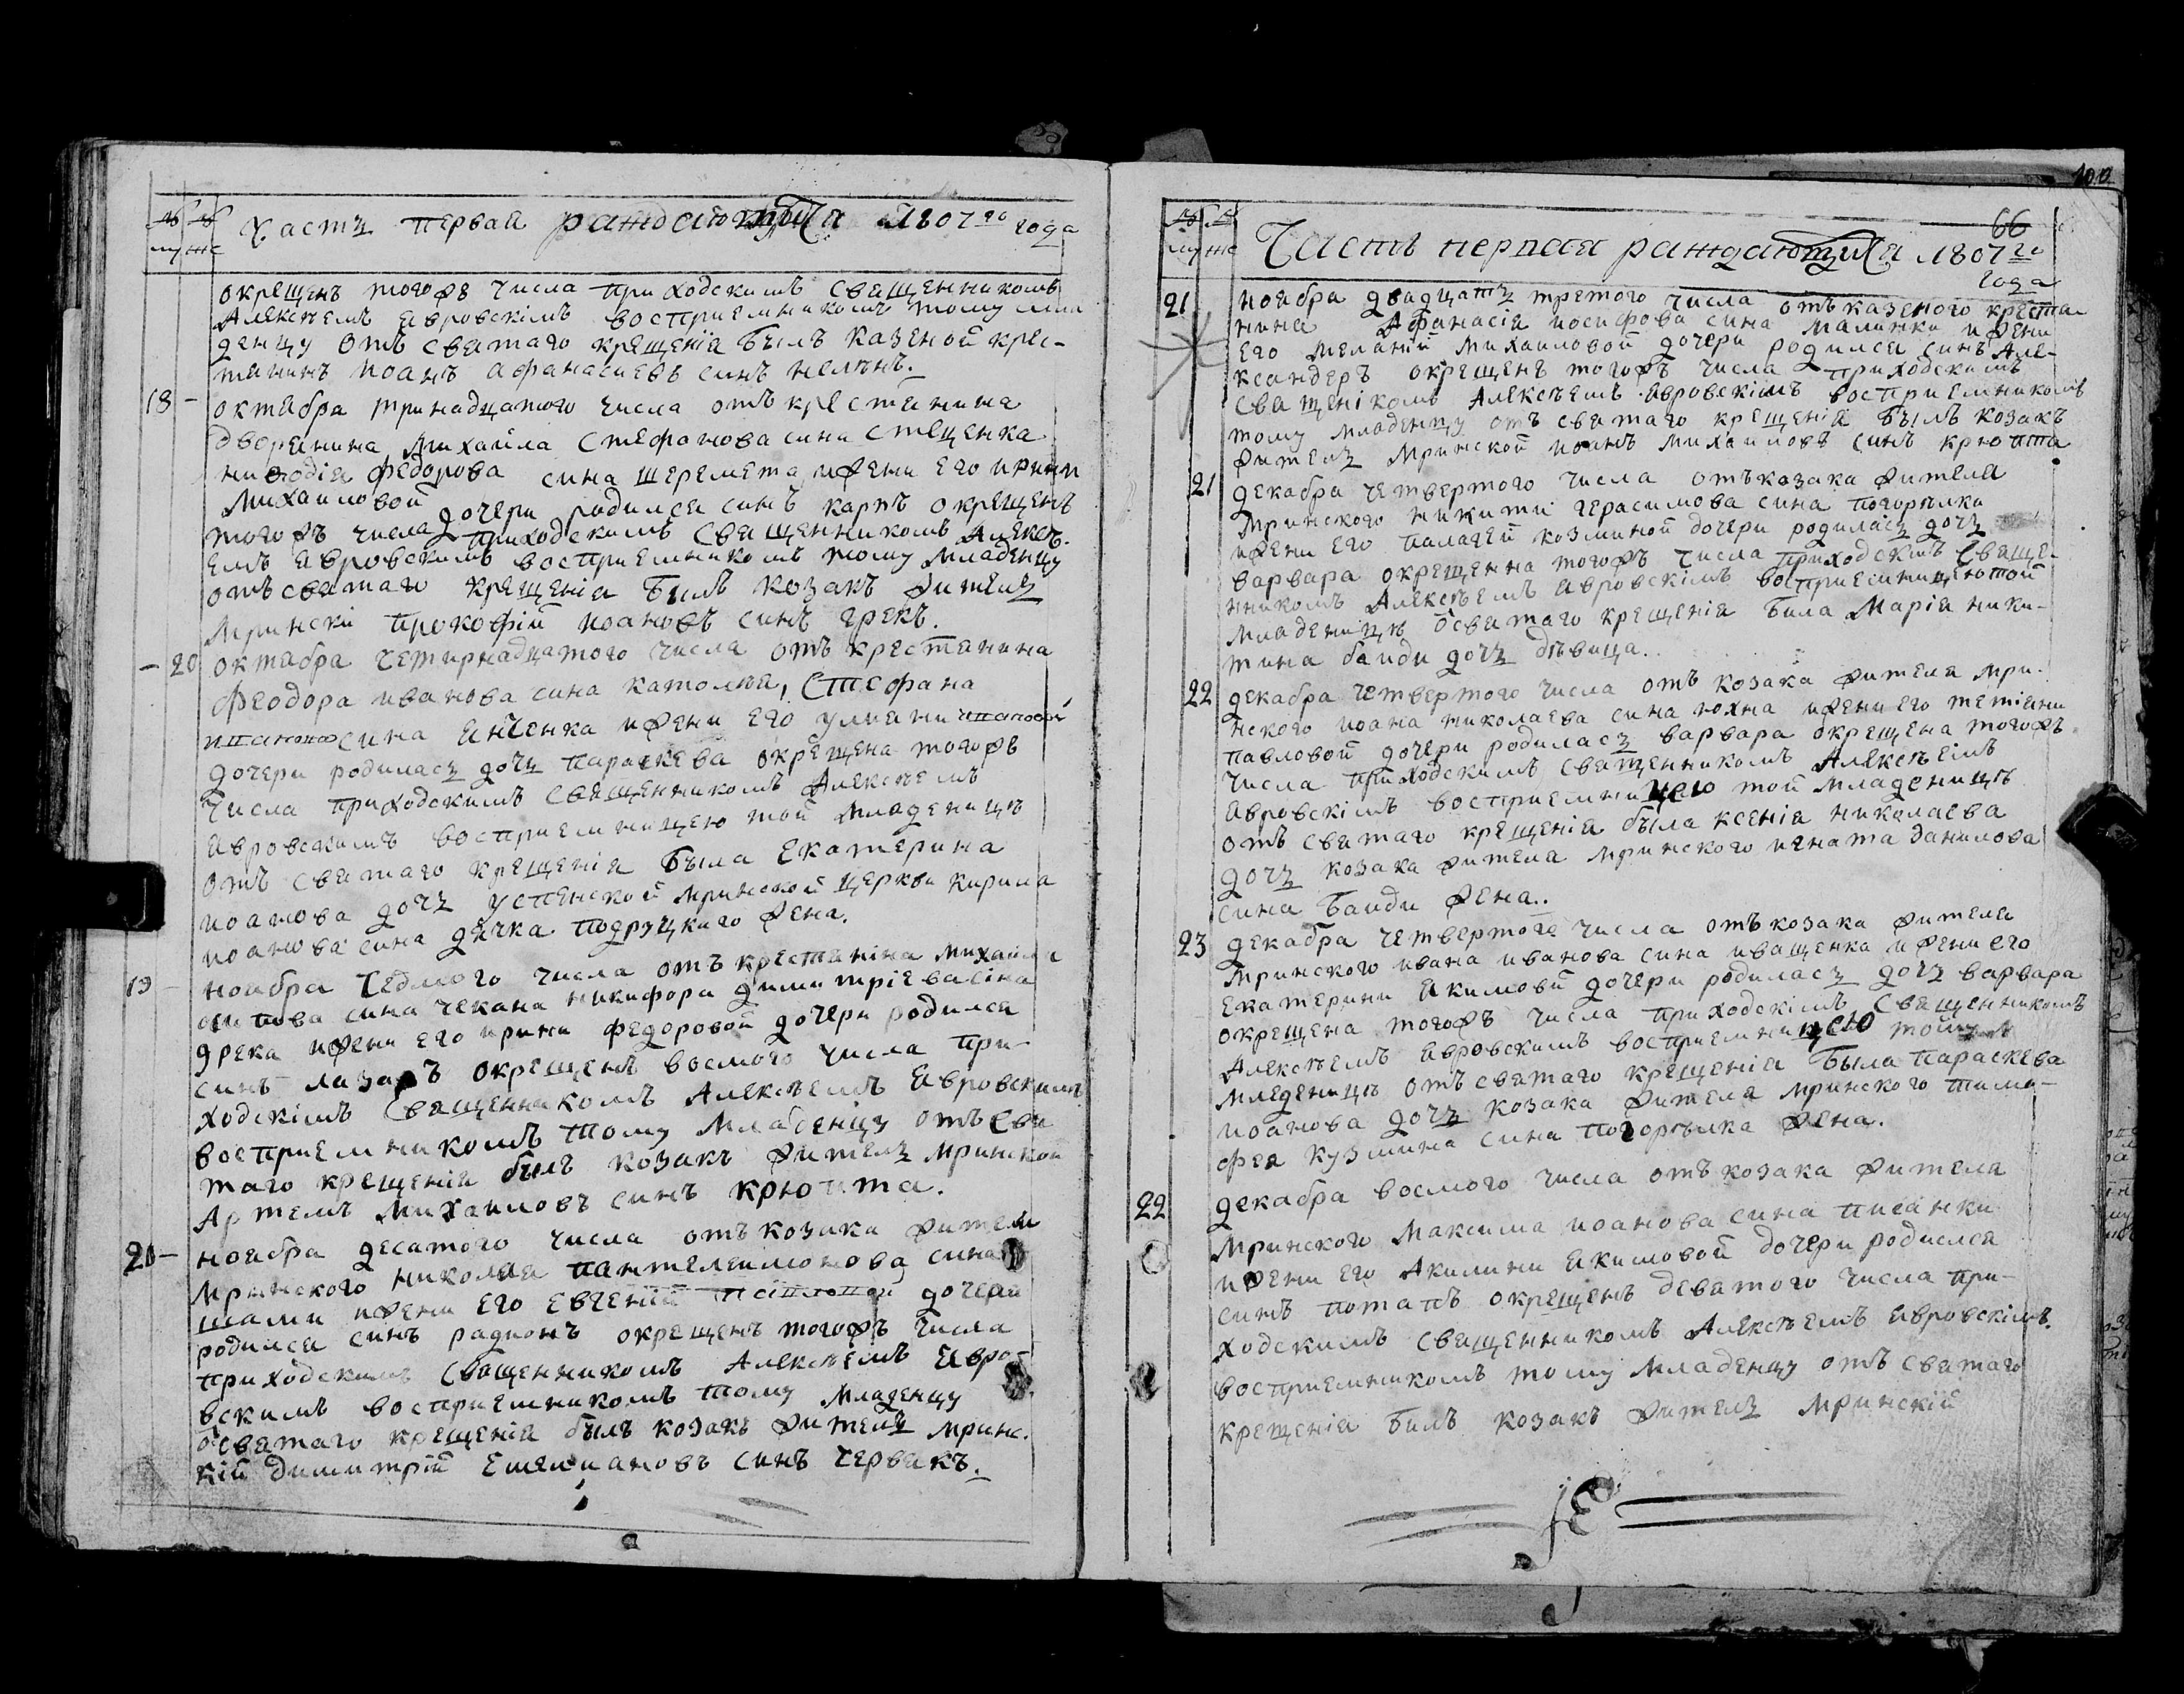 Часть первая раждающихся 1807 го года
му же
окрещенъ тогожъ числа приходскимъ священникомъ
Алексѣемъ Явровскімъ воспріемникомъ тому мла
денцу отъ святаго крещенія былъ казеной крес-
тянинъ Иоанъ Афанасиевъ синъ
18 - октября тринадцатого числа отъ крестянина
дворянина Михайла Стефанова сина Стещенка
федорова сина шеремета ижени его ирини
Михаиловой дочери родился синъ карпъ окрещенъ
тогожъ числа приходскимъ священникомъ Алексѣ-
емъ Явровскимъ воспріемникомъ тому младенцу
отъ святаго крещенія былъ козакъ житель
Мрински прокофій иоановъ синъ грекъ.
- 20 октября четирнадцатого числа отъ крестянина
Феодора иванова сина Стефана
сина Янченка ижени его улиани
дочери родилась дочь параскева окрещена тогожъ
числа приходскимъ священникомъ Алексѣемъ
Явровскимъ воспріемницею той младеницѣ
отъ святаго крещенія была Екатерина
иоанова дочь успенской мринской церкви кирила
иоанова сина дячка подруцкого жена.
19 ноября седмого числа отъ крестяніна михайла
осипова сина чекана никифора димитріева сіна
грека ижени его ирини федоровой дочери родился
синъ лазаръ окрещенъ восмого числа при-
ходскімъ священникомъ Алексѣемъ Явровскимъ
воспріемникомъ тому младенцу отъ свя
таго крещенія былъ козакъ житель мринской
Артемъ Михаиловъ синъ крюпта.
20 - ноября десятого числа отъ козака жителя
мринского николая пантелеимонова сина
ижени его Евгеній дочери
родился синъ радионъ окрещенъ тогожъ числа
приходскимъ священникомъ Алексѣемъ Явро-
вскимъ воспріемникомъ тому младенцу
отъ святаго крещенія былъ козакъ житель мринс.
кій димитрій Емелиановъ синъ червякъ.
100
66
му же
Часть первая раждающихся 1807 го
года
21 ноября двадцать третого числа отъ казеного крестя
нина Афанасія иосифова сина Малинки ижени
его меланій михаиловой дочери родился синъ Але-
ксандеръ окрещенъ тогожъ числа приходскимъ
священікомъ Алексѣемъ Явровскімъ воспріемникомъ
тому младенцу отъ святаго крещенія былъ козакъ
житель мринской иоанъ михаиловъ синъ крюпта
21 декабря четвертого числа отъ козака жителя
мринского никити герасимова сина погорѣлки
ижени его палагей козминой дочери родилась дочь
варвара окрещенна тогожъ числа приходскимъ свяще-
нникомъ Алексѣемъ Явровскімъ воспріемницею той
младеницѣ отъ святаго крещенія била Марія ники-
тина баиди дочь дѣвица.
22 декабря четвертого числа отъ козака жителя мри-
нского иоана николаева сина юхна ижени его тетіани
павловой дочери родилась варвара окрещена тогожъ
числа приходскимъ священникомъ Алексѣемъ
Явровскімъ воспріемницею той младеницѣ
отъ святаго крещенія была ксенія николаева
дочь козака жителя мринского игната данилова
сина Баиди жена..
23 декабря четвертого числа отъ козака жителя
мринского ивана иванова сина иващенка ижени его
Екатерини Якимовй дочери родилась дочь варвара
окрещена тогожъ числа приходскімъ священникомъ
Алексѣемъ Явровскимъ воспріемницею той
младеницѣ отъ святаго крещенія была параскева
иоанова дочь козака жителя мринского тимо-
фея кузмина сина погорѣлка жена.
22 декабря восмого числа отъ козака жителя
мринского Максима иоанова сина писанки
ижени его Акилини Якимовой дочери родился
синъ потапъ окрещенъ девятого числа при-
ходскимъ священникомъ Алексѣемъ Явровскімъ.
воспріемникомъ тому младенцу отъ святаго
крещенія билъ козакъ житель мринскій